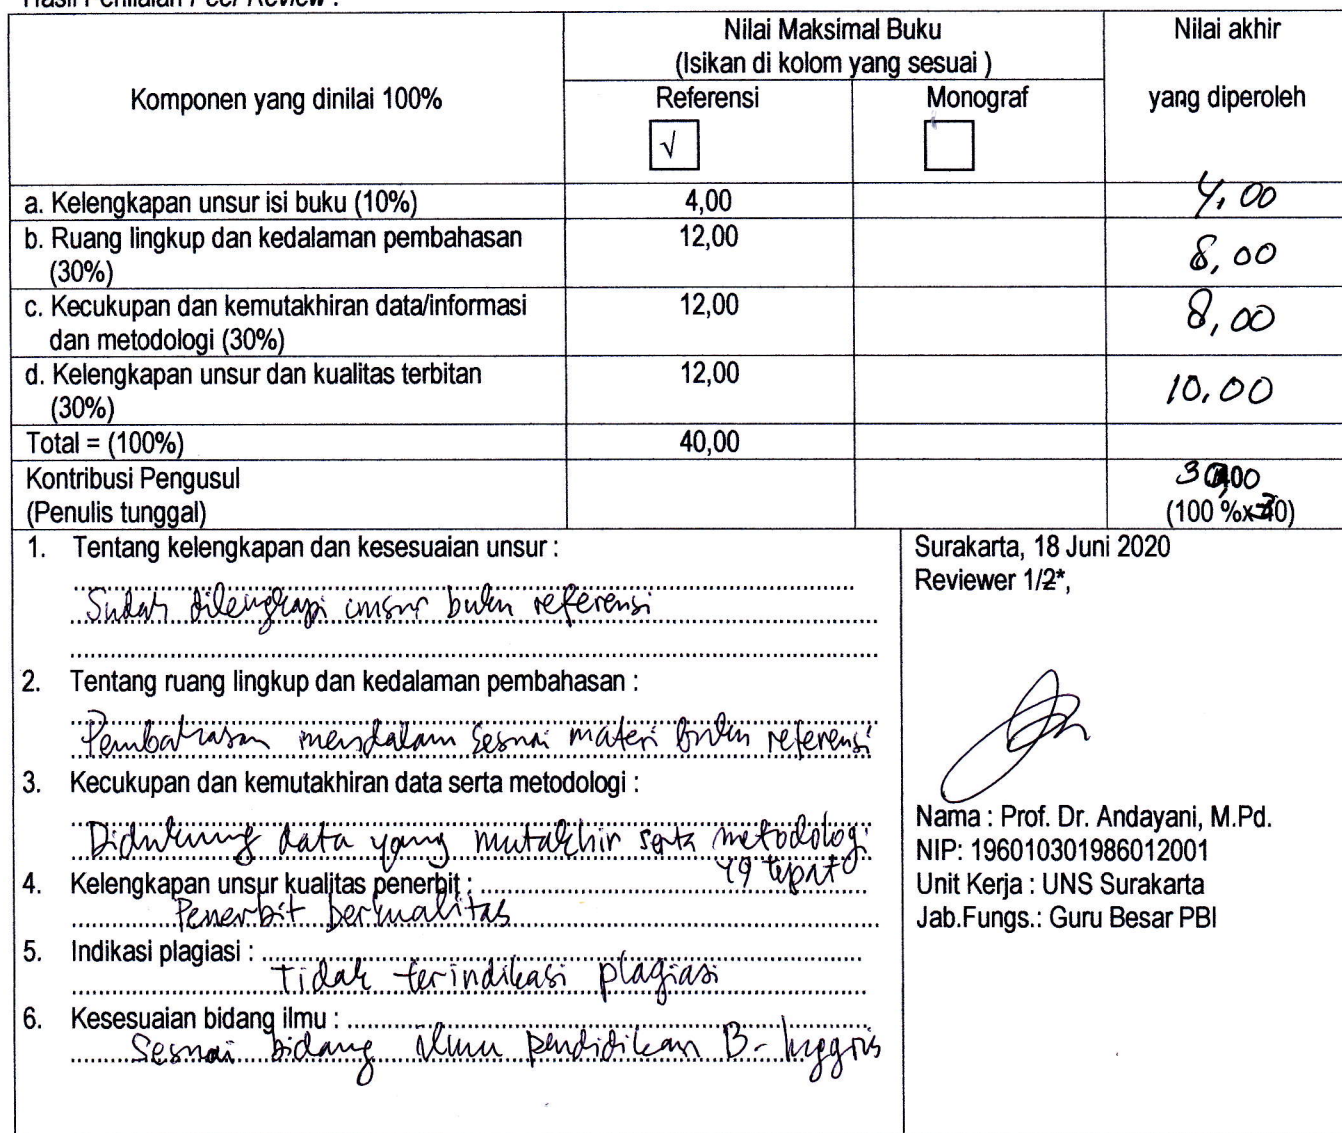 Hasil Penilaian Peer Review :
Komponen yang dinilai 100%
Nilai Maksimal Buku
(Isikan di kolom yang sesuai )
Referensi
√
Monograf
Nilai akhir
yang diperoleh
a. Kelengkapan unsur isi buku (10%) 4,00 4,00
b. Ruang lingkup dan kedalaman pembahasan
(30%) 12,00 8,00
c. Kecukupan dan kemutakhiran data/informasi
dan metodologi (30%) 12,00 8,00
d. Kelengkapan unsur dan kualitas terbitan
(30%) 12,00 10,00
Total = (100%) 40,00
Kontribusi Pengusul
(Penulis tunggal)
(100 %x
1. Tentang kelengkapan dan kesesuaian unsur :
Sudah dilengkapi unsur buku referensi
2. Tentang ruang lingkup dan kedalaman pembahasan :
Pembahasan mendalam sesuai materi buku referensi
3. Kecukupan dan kemutakhiran data serta metodologi :
Didukung data yang mutakhir serta metodologi
yg tepat
4. Kelengkapan unsur kualitas penerbit :
Penerbit berkualitas
5. Indikasi plagiasi :
Tidak terindikasi plagiasi
6. Kesesuaian bidang ilmu :
Sesuai bidang ilmu pendidikan B. Inggris
Surakarta, 18 Juni 2020
Reviewer 1/2*,
Nama : Prof. Dr. Andayani, M.Pd.
NIP: 196010301986012001
Unit Kerja : UNS Surakarta
Jab.Fungs.: Guru Besar PBI